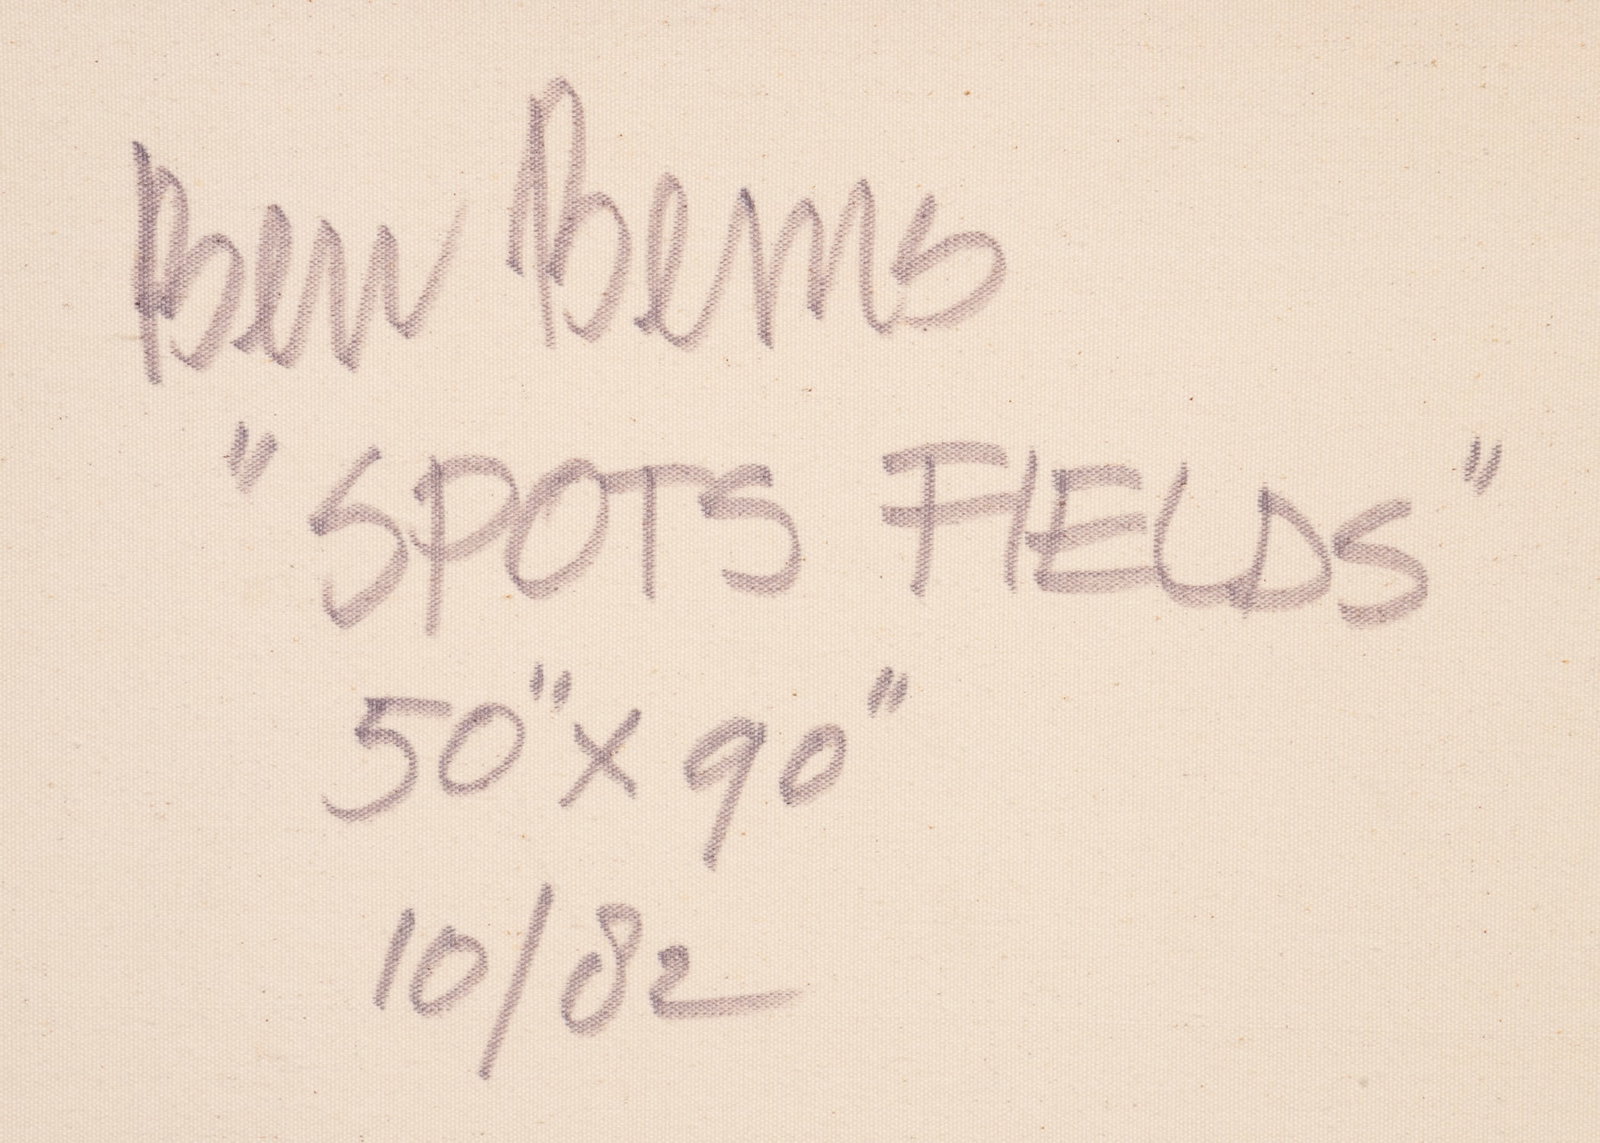 Ben Berns
"SPOTS FIELDS"
50" x 90"
10/82